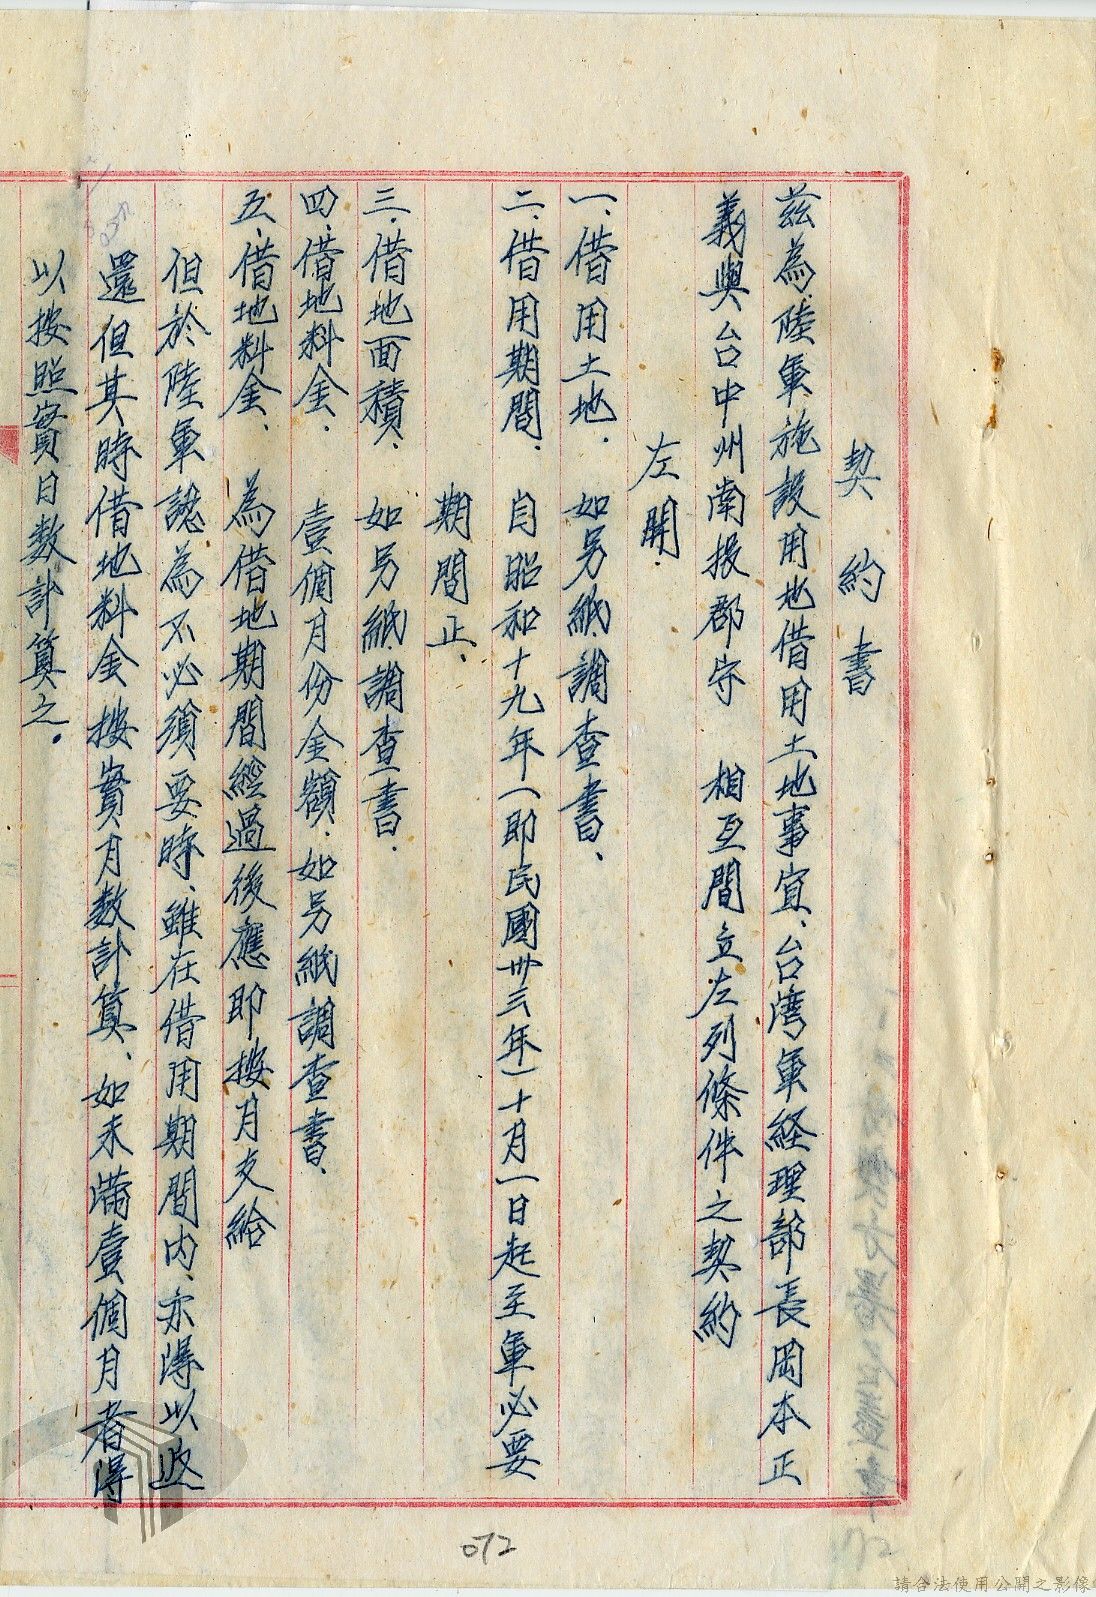 契約書
茲為陸軍施設用地借用土地事宜、台湾軍経理部長岡本正
義與台中州南投郡守　相互間立左列條件之契約
左開
一、借用土地、如另紙調查書、
二、借用期間、自昭和十九年（即民國卅三年）十月一日起至軍必要
期間正、
三、借地面積、如另紙調查書、
四、借地料金、壹個月份金額、如另紙調查書、
五、借地料金、為借地期間經過後應即按月支給
但於陸軍認為不必須要時、雖在借用期間內、亦得以返
還但其時借地料金按實月数計算、如未滿壹個月者得
以按照實日数計算之。
072
請合法使用公開之影像